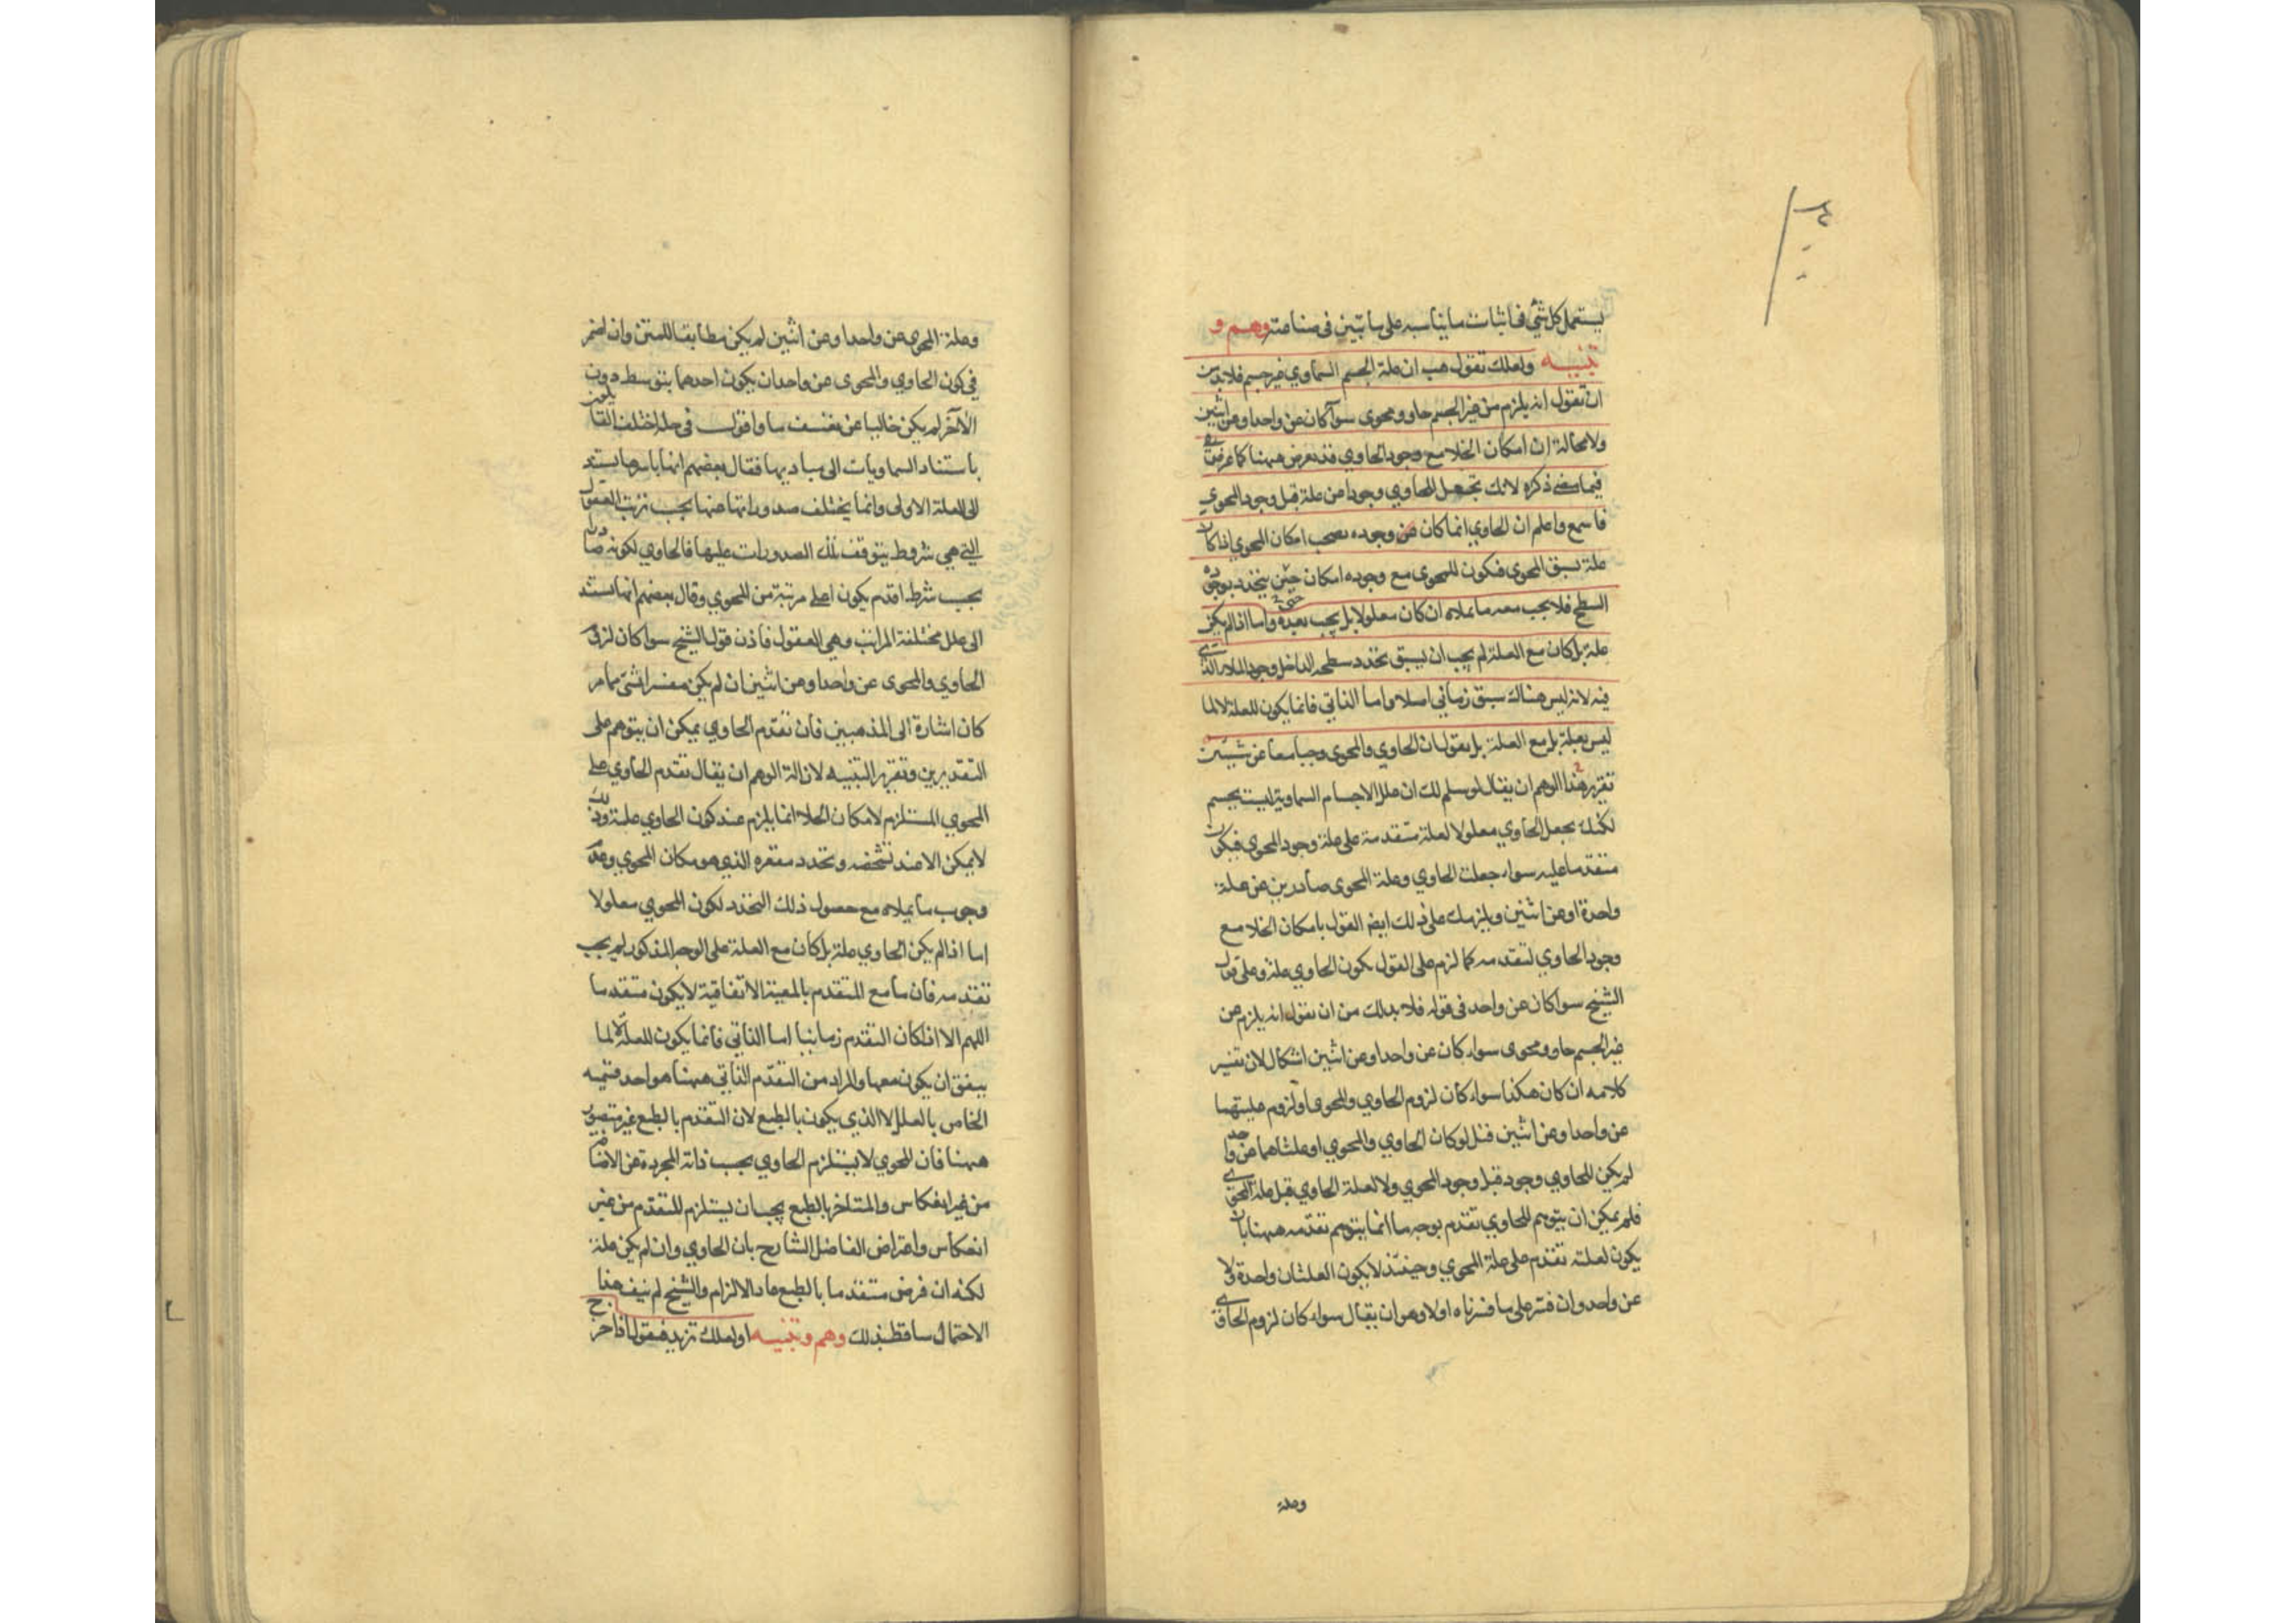 يستعمل كل شئ في اثبات ما يناسبه على ما تبين في صناعته وهم و
تنبيه ولعلك تقول هب ان علة الجسم السماوي غير جسم فلا بد من
ان تقول انه يلزم من غير الجسم حاو ومحوى سوآ كان عن واحد او عن اثنين
ولا محالة ان امكان الخلا مع وجود الحاوي قد يعرض ههنا كما عرض
فيما مضى ذكره لانك تجعل للحاوي وجودا من علة قبل وجود المحوي
فاسمع واعلم ان الحاوي انما كان وجوده يصحب امكان المحوي اذا كان
علة تسبق المحوى فيكون للمحوى مع وجوده امكان حين يتحدد بوجوده
السطح فلا يجب معه ما يملاه ان كان معلولا بل يجب بعده واما اذا لم يكن
علة بل كان مع العلة لم يجب ان يسبق تحدد سطحه الداخل وجود الملاء الذي
فيه لانه ليس هناك سبق زماني اصلا واما الذاتي فانما يكون للعلة لا لما
ليس بعلة بل مع العلة بل نقول ان الحاوي والمحوى وجبا معا عن شيئين
تقرير هذا الوهم ان يقال لو سلم لك ان علل الاجسام السماوية ليست بجسم
لكنك تجعل الحاوي معلولا لعلة متقدمة على علة وجود المحوى فيكون
متقدما عليه سواء جعلت الحاوي وعلة المحوى صادرين عن علة
واحدة او عن اثنين ويلزمك على ذلك ايضا القول بامكان الخلا مع
وجود الحاوي لتقدمه كما لزم على القول بكون الحاوي علة وعلى قول
الشيخ سوا كان عن واحد في قوله فلا بد لك من ان تقول انه يلزم من
غير الجسم حاو ومحوى سواء كان عن واحد او عن اثنين اشكال لان تفسير
كلامه ان كان هكذا سواء كان لزوم الحاوي والمحوى او لزوم علتيهما
عن واحد او عن اثنين قيل لو كان الحاوي والمحوي او علتاهما عن واحد
لم يكن للحاوي وجود قبل وجود المحوي ولا لعلة الحاوي قبل علة المحوى
فلم يمكن ان يتوهم للحاوي تقدم بوجه ما انما يتوهم تقدمه ههنا بان
يكون لعلته تقدم على علة المحوي وحينئذ لا يكون العلتان واحدة ولا
عن واحد وان فسر على ما فسرناه اولا وهو ان يقال سواء كان لزوم الحاوي
وعلة
وعلة المحوى عن واحد او عن اثنين لم يكن مطابقا للمتن وان اضمر
في كون الحاوي والمحوى عن واحد ان يكون احدهما بتوسط دون
الآخر لم يكن خاليا عن تعسف ما واقول قد اختلف القائلون
باستناد السماويات الى مباديها فقال بعضهم انها باسرها يستند
الى العلة الاولى وانما يختلف صدوراتها عنها بحسب ترتب العقول
التي هي شروط يتوقف تلك الصدورات عليها فالحاوي لكونه صادرا
بحسب شرط اقدم يكون اعلى مرتبة من المحوي وقال بعضهم انها تستند
الى علل مختلفة المراتب وهي العقول فاذن قول الشيخ سوا كان لزوم
الحاوي والمحوى عن واحد او عن اثنين ان لم يكن مفسرا بشئ مما مر
كان اشارة الى المذهبين فان تقدم الحاوي يمكن ان يتوهم على
التقديرين وتقرير التنبيه لازالة الوهم ان يقال تقدم الحاوي على
المحوي المستلزم لامكان الخلا انما يلزم عند كون الحاوي علة وذلك
لا يمكن الا عند تشخصه وتحدد مقعره الذي هو مكان المحوي وعدم
وجوب ما يملاه مع حصول ذلك التحدد لكون المحوي معلولا
اما اذا لم يكن الحاوي علة بل كان مع العلة على الوجه المذكور لم يجب
تقدمه فان ما مع المتقدم بالمعية الاتفاقية لا يكون متقدما
اللهم الا اذا كان التقدم زمانيا اما الذاتي فانما يكون للعلة لا لما
يتفق ان يكون معها والمراد من التقدم الذاتي ههنا هو احد قسميه
الخاص بالعلل لا الذي يكون بالطبع لان التقدم بالطبع غير متصور
ههنا فان المحوي لا يستلزم الحاوي بحسب ذاته المجردة عن الاضافة
من غير انعكاس والمتاخر بالطبع يجب ان يستلزم المتقدم من غير
انعكاس واعتراض الفاضل الشارح بان الحاوي وان لم يكن علة
لكنه ان فرض متقدما بالطبع عاد الالزام والشيخ لم ينف هذا
الاحتمال ساقط بذلك وهم وتنبيه او لعلك تزيد فتقول اذا خرج